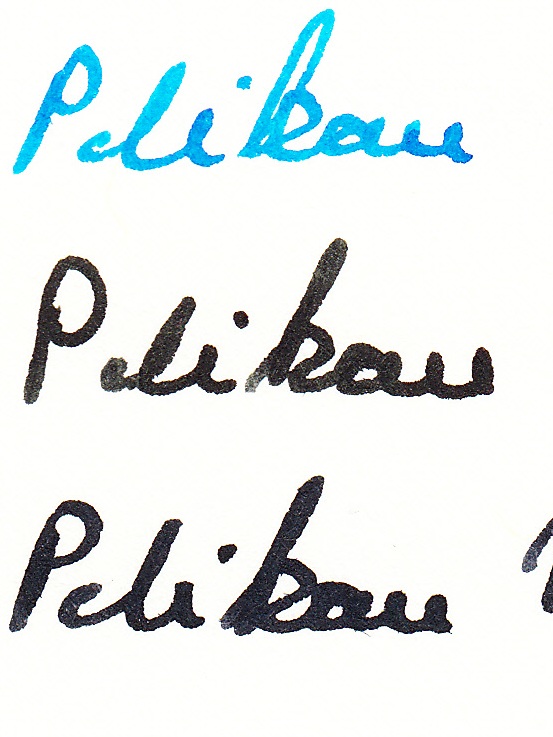 Pelikan
Pelikan
Pelikan